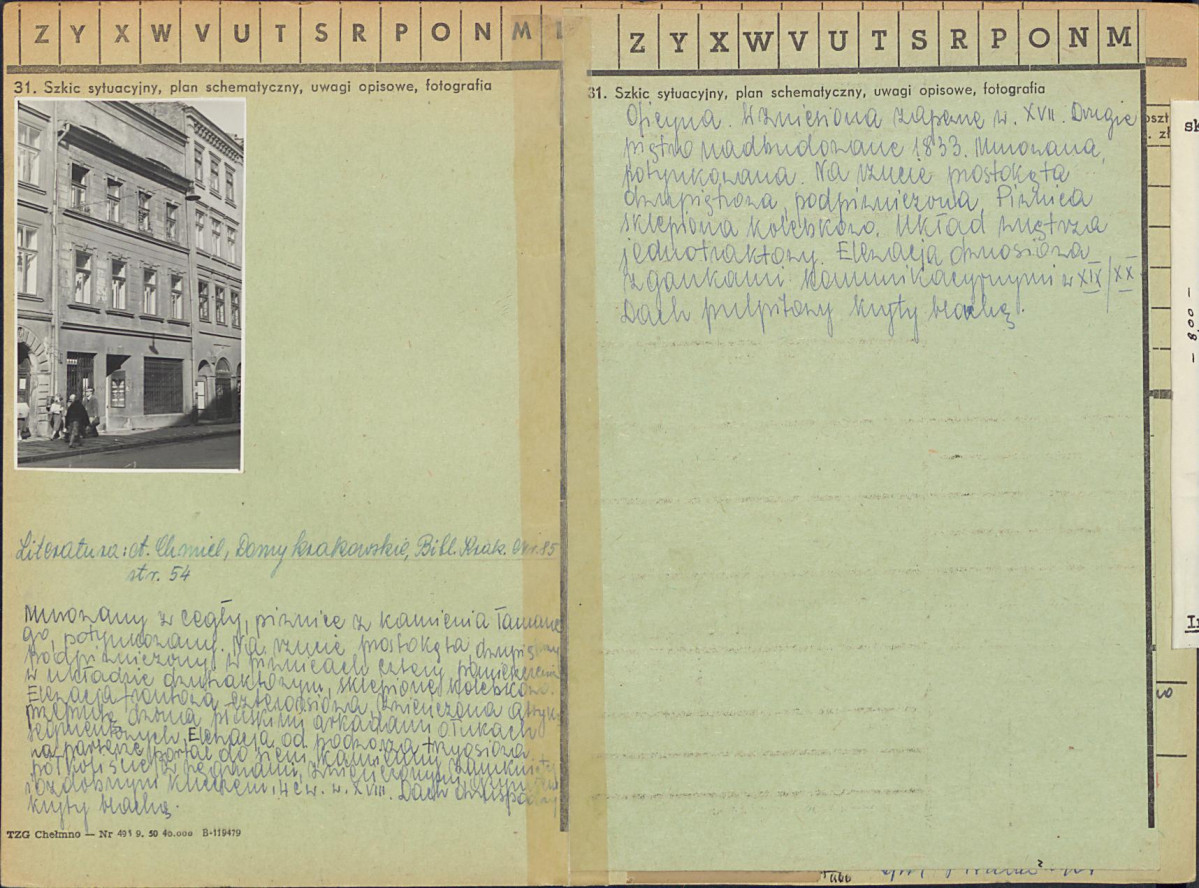 Z Y X W V U T S R P O N M L
31. Szkic sytuacyjny, plan schematyczny, uwagi opisowe, fotografia
Literatura: A. Chmiel, Domy krakowskie, Bibl. Krak. 85
str. 54
Murowany z cegły, piwnice z kamienia łamane
go, potynkowany. Na rzucie prostokąta dwupiętrowy
podpiwniczony, w piwnicach cztery pomieszczenia
w układzie dwutraktowym, sklepione kolebkowo.
Elewacja frontowa czteroosiowa, zwieńczona attyką
przeprutą dwoma płaskimi arkadami o łukach
segmentowych. Elewacja od podwórza trzyosiowa
na parterze portal do sieni, kamienny zamknięty
półkoliście, z
ozdobnym kluczem, 4 ćw. w. XVIII. Dach dwuspadowy
kryty blachą.
TZG Chełmno — Nr 491 9. 50 40.000 B-119479
Z Y X W V U T S R P O N M
31. Szkic sytuacyjny, plan schematyczny, uwagi opisowe, fotografia
Oficyna. Wzniesiona zapewne w. XVII. Drugie
piętro nadbudowane 1833. Murowana,
potynkowana. Na rzucie prostokąta
dwupiętrowa, podpiwniczona. Piwnica
sklepiona kolebkowo. Układ wnętrza
jednotraktowy. Elewacja dwuosiowa
z gankami komunikacyjnymi w XIX/XX
Dach pulpitowy kryty blachą.
oszt
. zł
sk
- 8,00 -